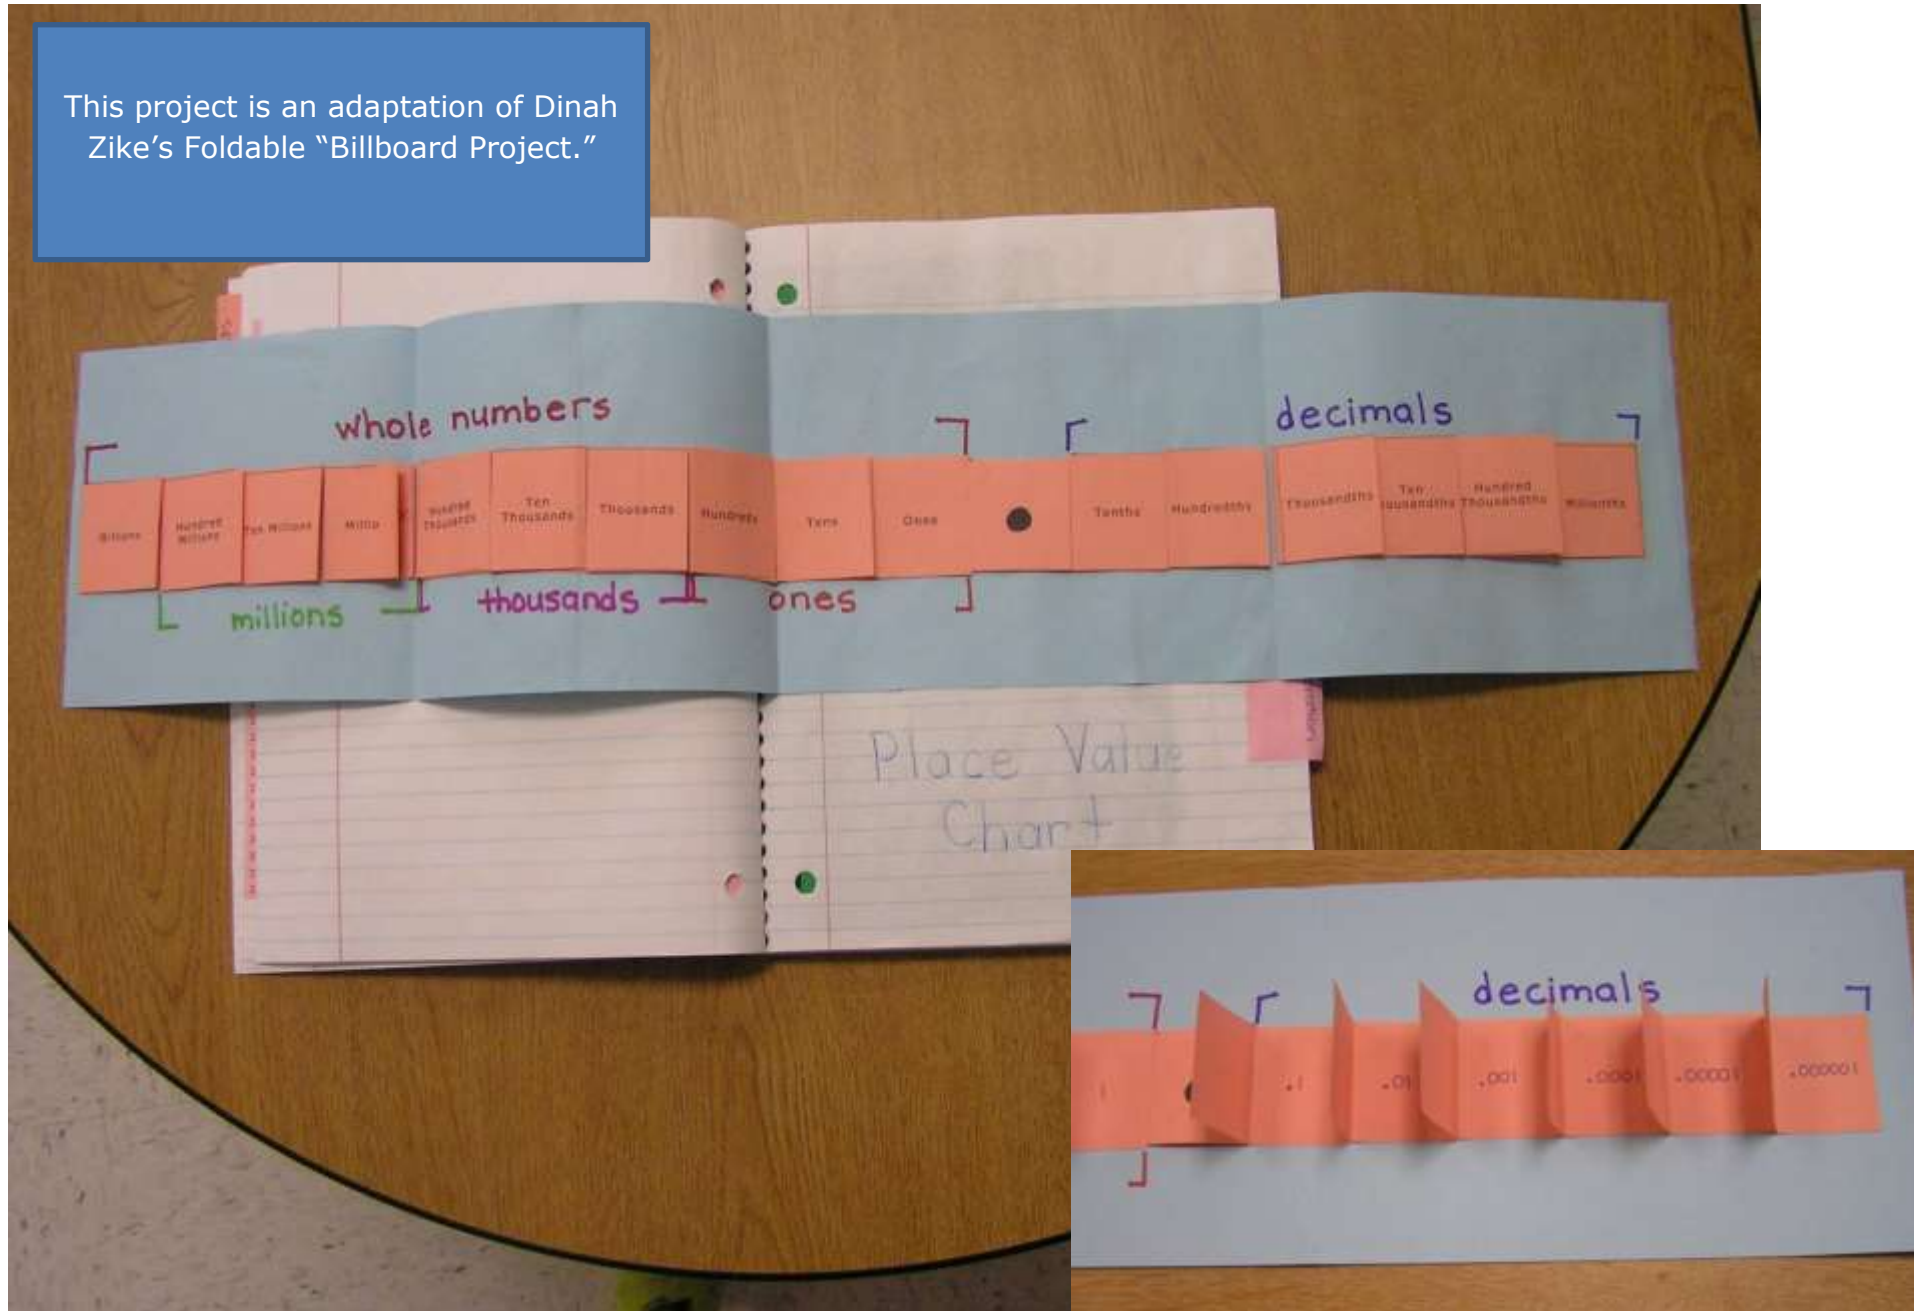 This project is an adaptation of Dinah
Zike’s Foldable “Billboard Project.”
whole numbers
decimals
Billions
Hundred
Millions
Ten Millions
Millio
Hundred
Thousands
Ten
Thousands
Thousands
Hundreds
Tens
Ones
Tenths
Hundredths
Thousandths
Ten
ousandths
Hundred
Thousandths
Millionths
millions
thousands
ones
Place Value
Chart
decimals
1
.1
.01
.001
.0001
.00001
.000001